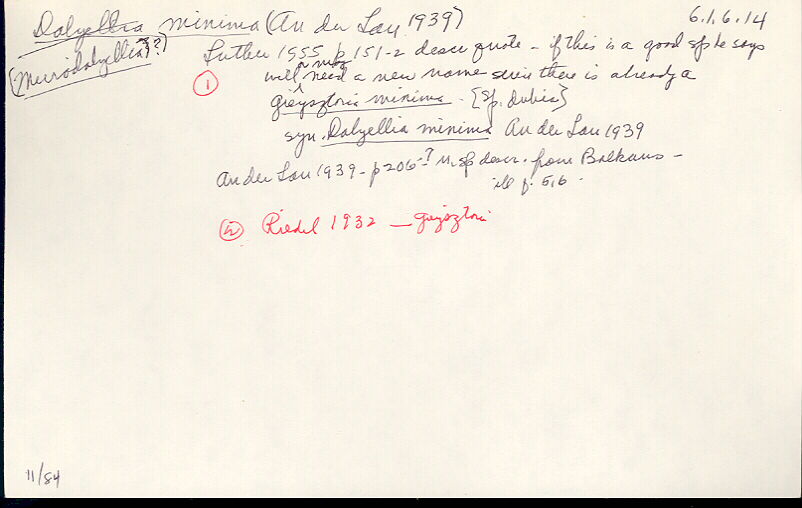 Dalyellia minima (An der Lan 1939) 6.1.6.14
(Microdalyellia??)
Luther 1955 p 151-2 descr quote - if this is a good sp he says
① will ^ or may need a new name since there is already a
gieysztoria minima. [Sp. Dubia]
syn. Dalyellia minima An der Lan 1939
An der Lan 1939 - p 206-? n. sp descr. from Balkans -
ill f. 5,6.
② Riedel 1932 - gieysztoria
11/84